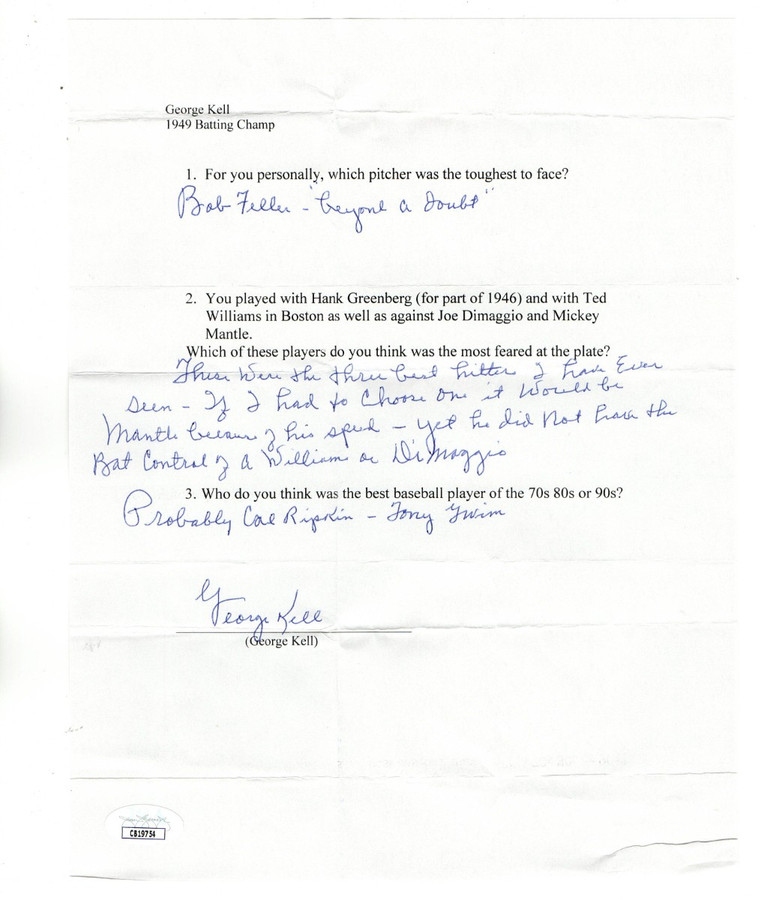 George Kell
1949 Batting Champ
1. For you personally, which pitcher was the toughest to face?
Bob Feller - "beyone a doubt"
2. You played with Hank Greenberg (for part of 1946) and with Ted
Williams in Boston as well as against Joe Dimaggio and Mickey
Mantle.
Which of these players do you think was the most feared at the plate?
These were the three best hitters I have Ever
seen - If I had to Choose one it would be
Mantle because of his speed - yet he did Not have the
Bat Control of a Williams or DiMaggio
3. Who do you think was the best baseball player of the 70s 80s or 90s?
Probably Cal Ripkin - Tony Gwinn
George Kell
(George Kell)
CB19754